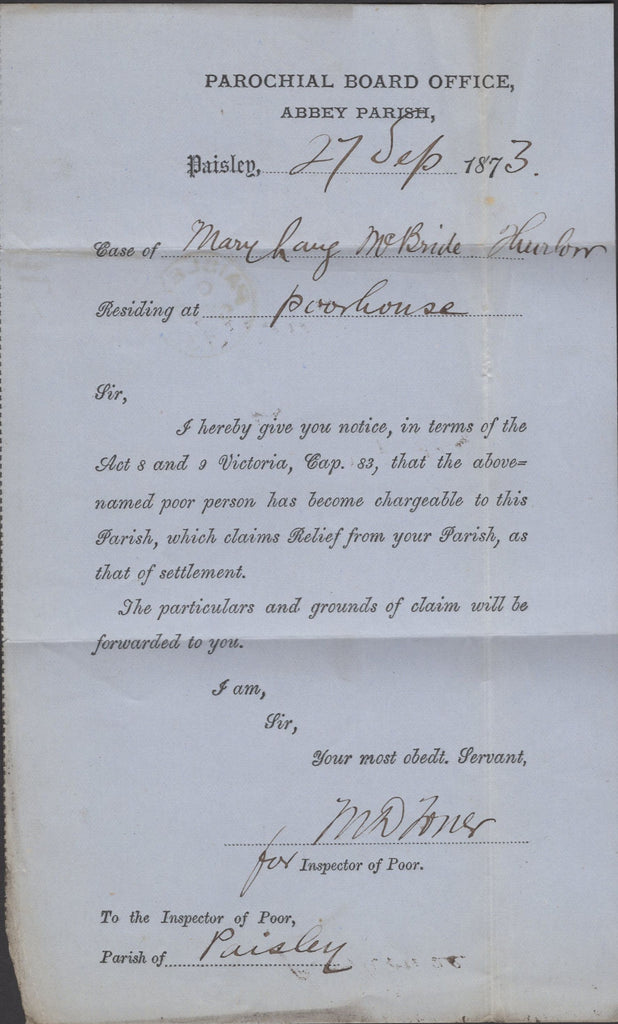 PAROCHIAL BOARD OFFICE,
ABBEY PARISH,
Paisley, 27 Sep 1873.
Case of Mary Lang McBride
Residing at poorhouse
Sir,
I hereby give you notice, in terms of the
Act 8 and 9 Victoria, Cap. 83, that the above=
named poor person has become chargeable to this
Parish, which claims Relief from your Parish, as
that of settlement.
The particulars and grounds of claim will be
forwarded to you.
I am,
Sir,
Your most obedt. Servant,
for Inspector of Poor.
To the Inspector of Poor,
Parish of Paisley